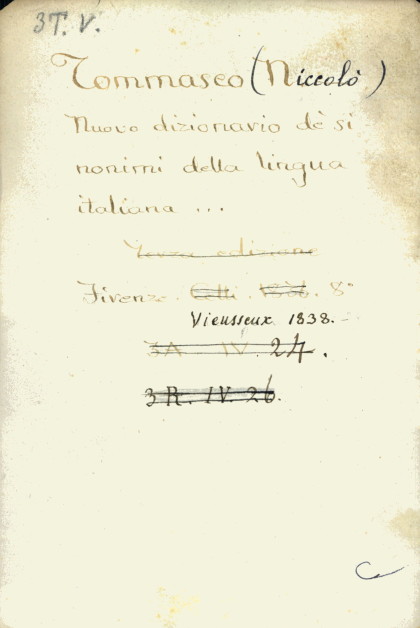 3T. V.
Tommaseo (Niccolò)
Nuovo dizionario de' si
nonimi della lingua
italiana ...
Terza edizione
Firenze. Celli. 1856. 8°
Vieusseux 1838.
3A IV. 24.
3 R. IV. 26.
C